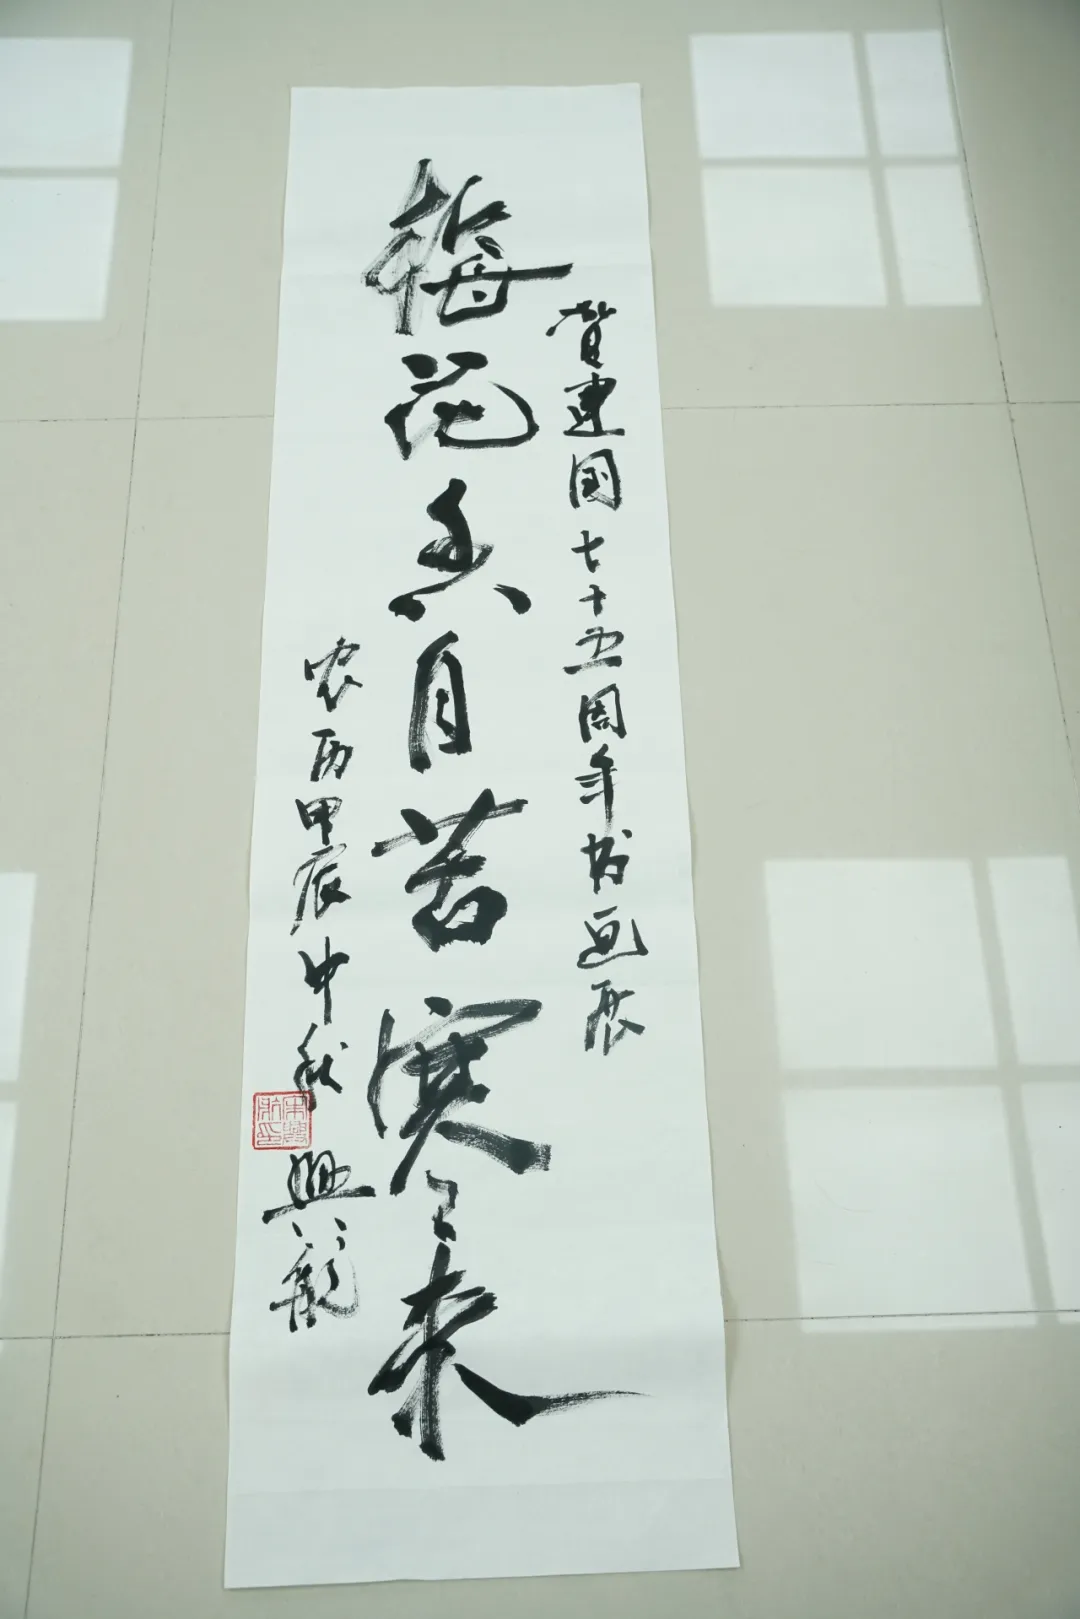 贺建国七十五周年书画展
梅花香自苦寒来
农历甲辰中秋
兴龙